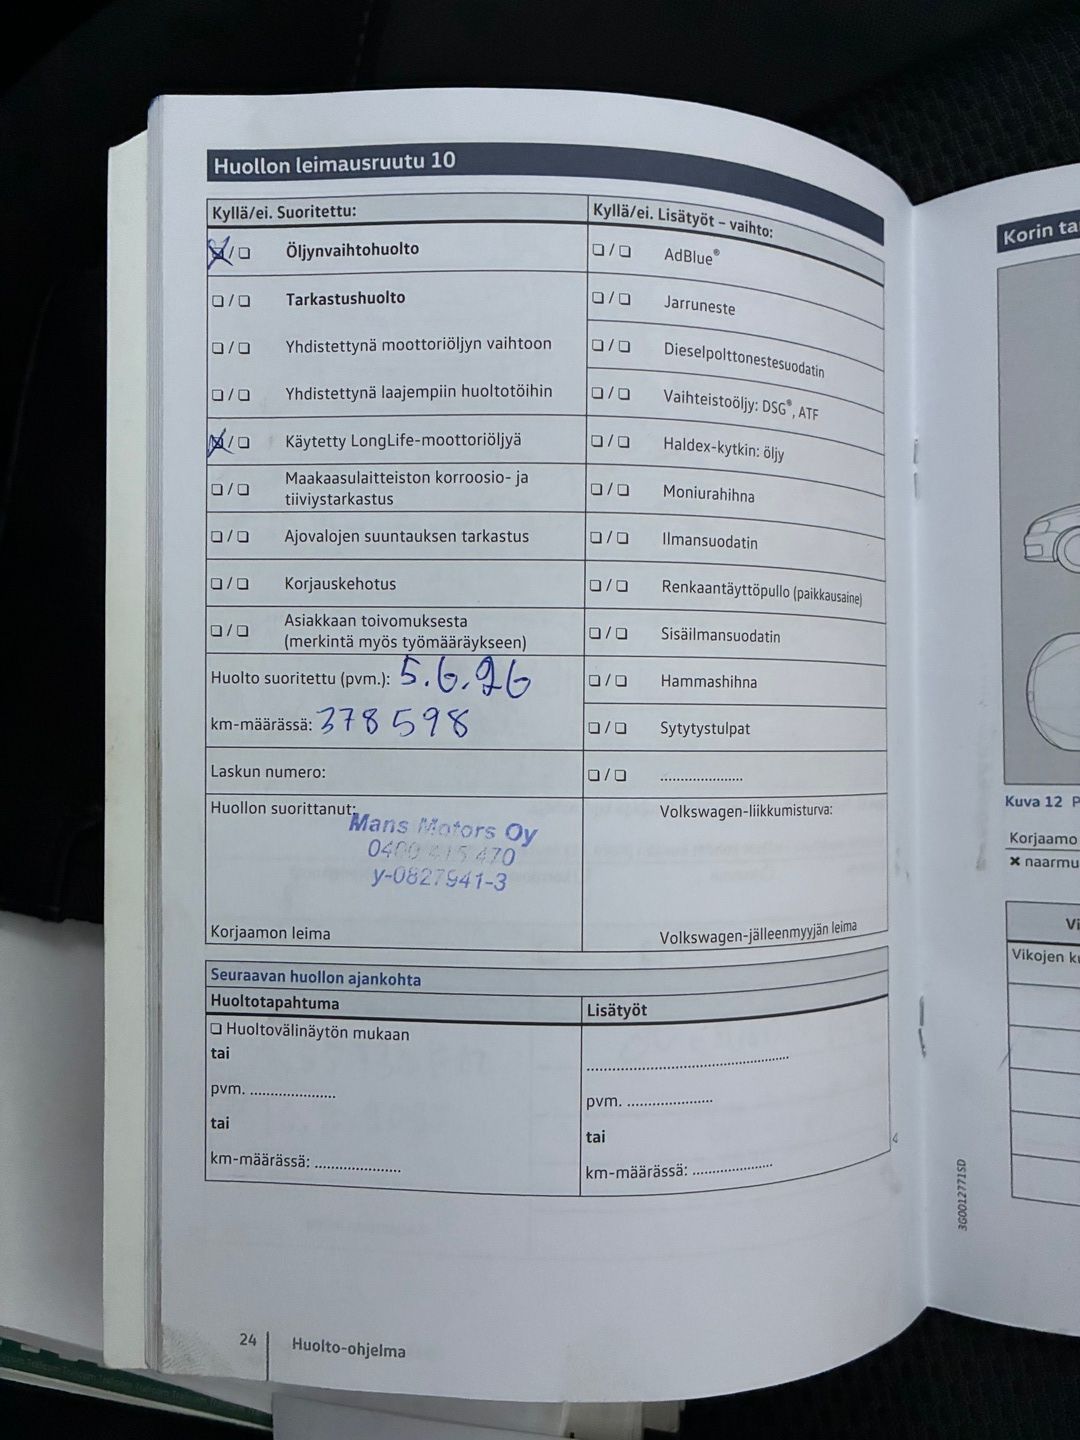 Huollon leimausruutu 10
Kyllä/ei. Suoritettu:
❏/❏ Öljynvaihtohuolto
❏/❏ Tarkastushuolto
❏/❏ Yhdistettynä moottoriöljyn vaihtoon
❏/❏ Yhdistettynä laajempiin huoltotöihin
❏/❏ Käytetty LongLife-moottoriöljyä
❏/❏ Maakaasulaitteiston korroosio- ja
tiiviystarkastus
❏/❏ Ajovalojen suuntauksen tarkastus
❏/❏ Korjauskehotus
❏/❏ Asiakkaan toivomuksesta
(merkintä myös työmääräykseen)
Huolto suoritettu (pvm.): 5.6.26
km-määrässä: 378 598
Laskun numero:
Huollon suorittanut:
Mans Motors Oy
0400 415 470
y-0827941-3
Korjaamon leima
Kyllä/ei. Lisätyöt – vaihto:
❏/❏ AdBlue®
❏/❏ Jarruneste
❏/❏ Dieselpolttonestesuodatin
❏/❏ Vaihteistoöljy: DSG®, ATF
❏/❏ Haldex-kytkin: öljy
❏/❏ Moniurahihna
❏/❏ Ilmansuodatin
❏/❏ Renkaantäyttöpullo (paikkausaine)
❏/❏ Sisäilmansuodatin
❏/❏ Hammashihna
❏/❏ Sytytystulpat
❏/❏ .....................
Volkswagen-liikkumisturva:
Volkswagen-jälleenmyyjän leima
Seuraavan huollon ajankohta
Huoltotapahtuma
❏ Huoltovälinäytön mukaan
tai
pvm. .....................
tai
km-määrässä: .....................
Lisätyöt
..................................................
pvm. .....................
tai
km-määrässä: ...................
24
Huolto-ohjelma
3G0012771SD
Korin ta
Kuva 12 P
Korjaamo
✖ naarmu
Vi
Vikojen ku